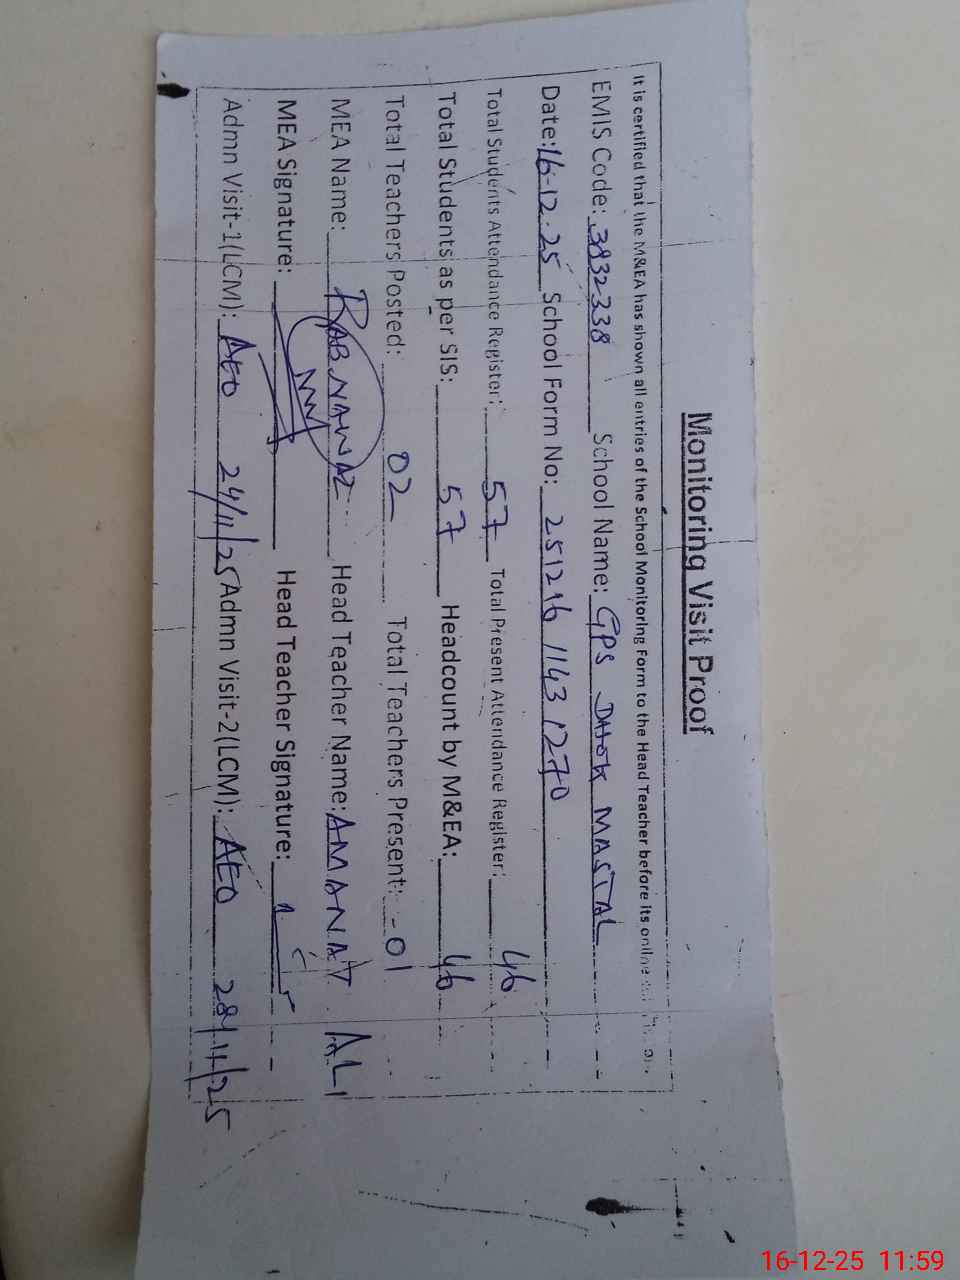 Monitoring Visit Proof
It is certified that the M&EA has shown all entries of the School Monitoring Form to the Head Teacher before its online
EMIS Code: 3832338 School Name: GPS DHOK MASTAL
Date: 16-12-25 School Form No: 251216 1143 1270
Total Students Attendance Register: 57 Total Present Attendance Register: 46
Total Students as per SIS: 57 Headcount by M&EA: 46
Total Teachers Posted: 02 Total Teachers Present: -01
MEA Name: RAB NAWAZ Head Teacher Name: AMANAT ALI
MEA Signature: Head Teacher Signature:
Admn Visit-1(LCM): AEO 24/11/25 Admn Visit-2(LCM): AEO 28/11/25
16-12-25 11:59